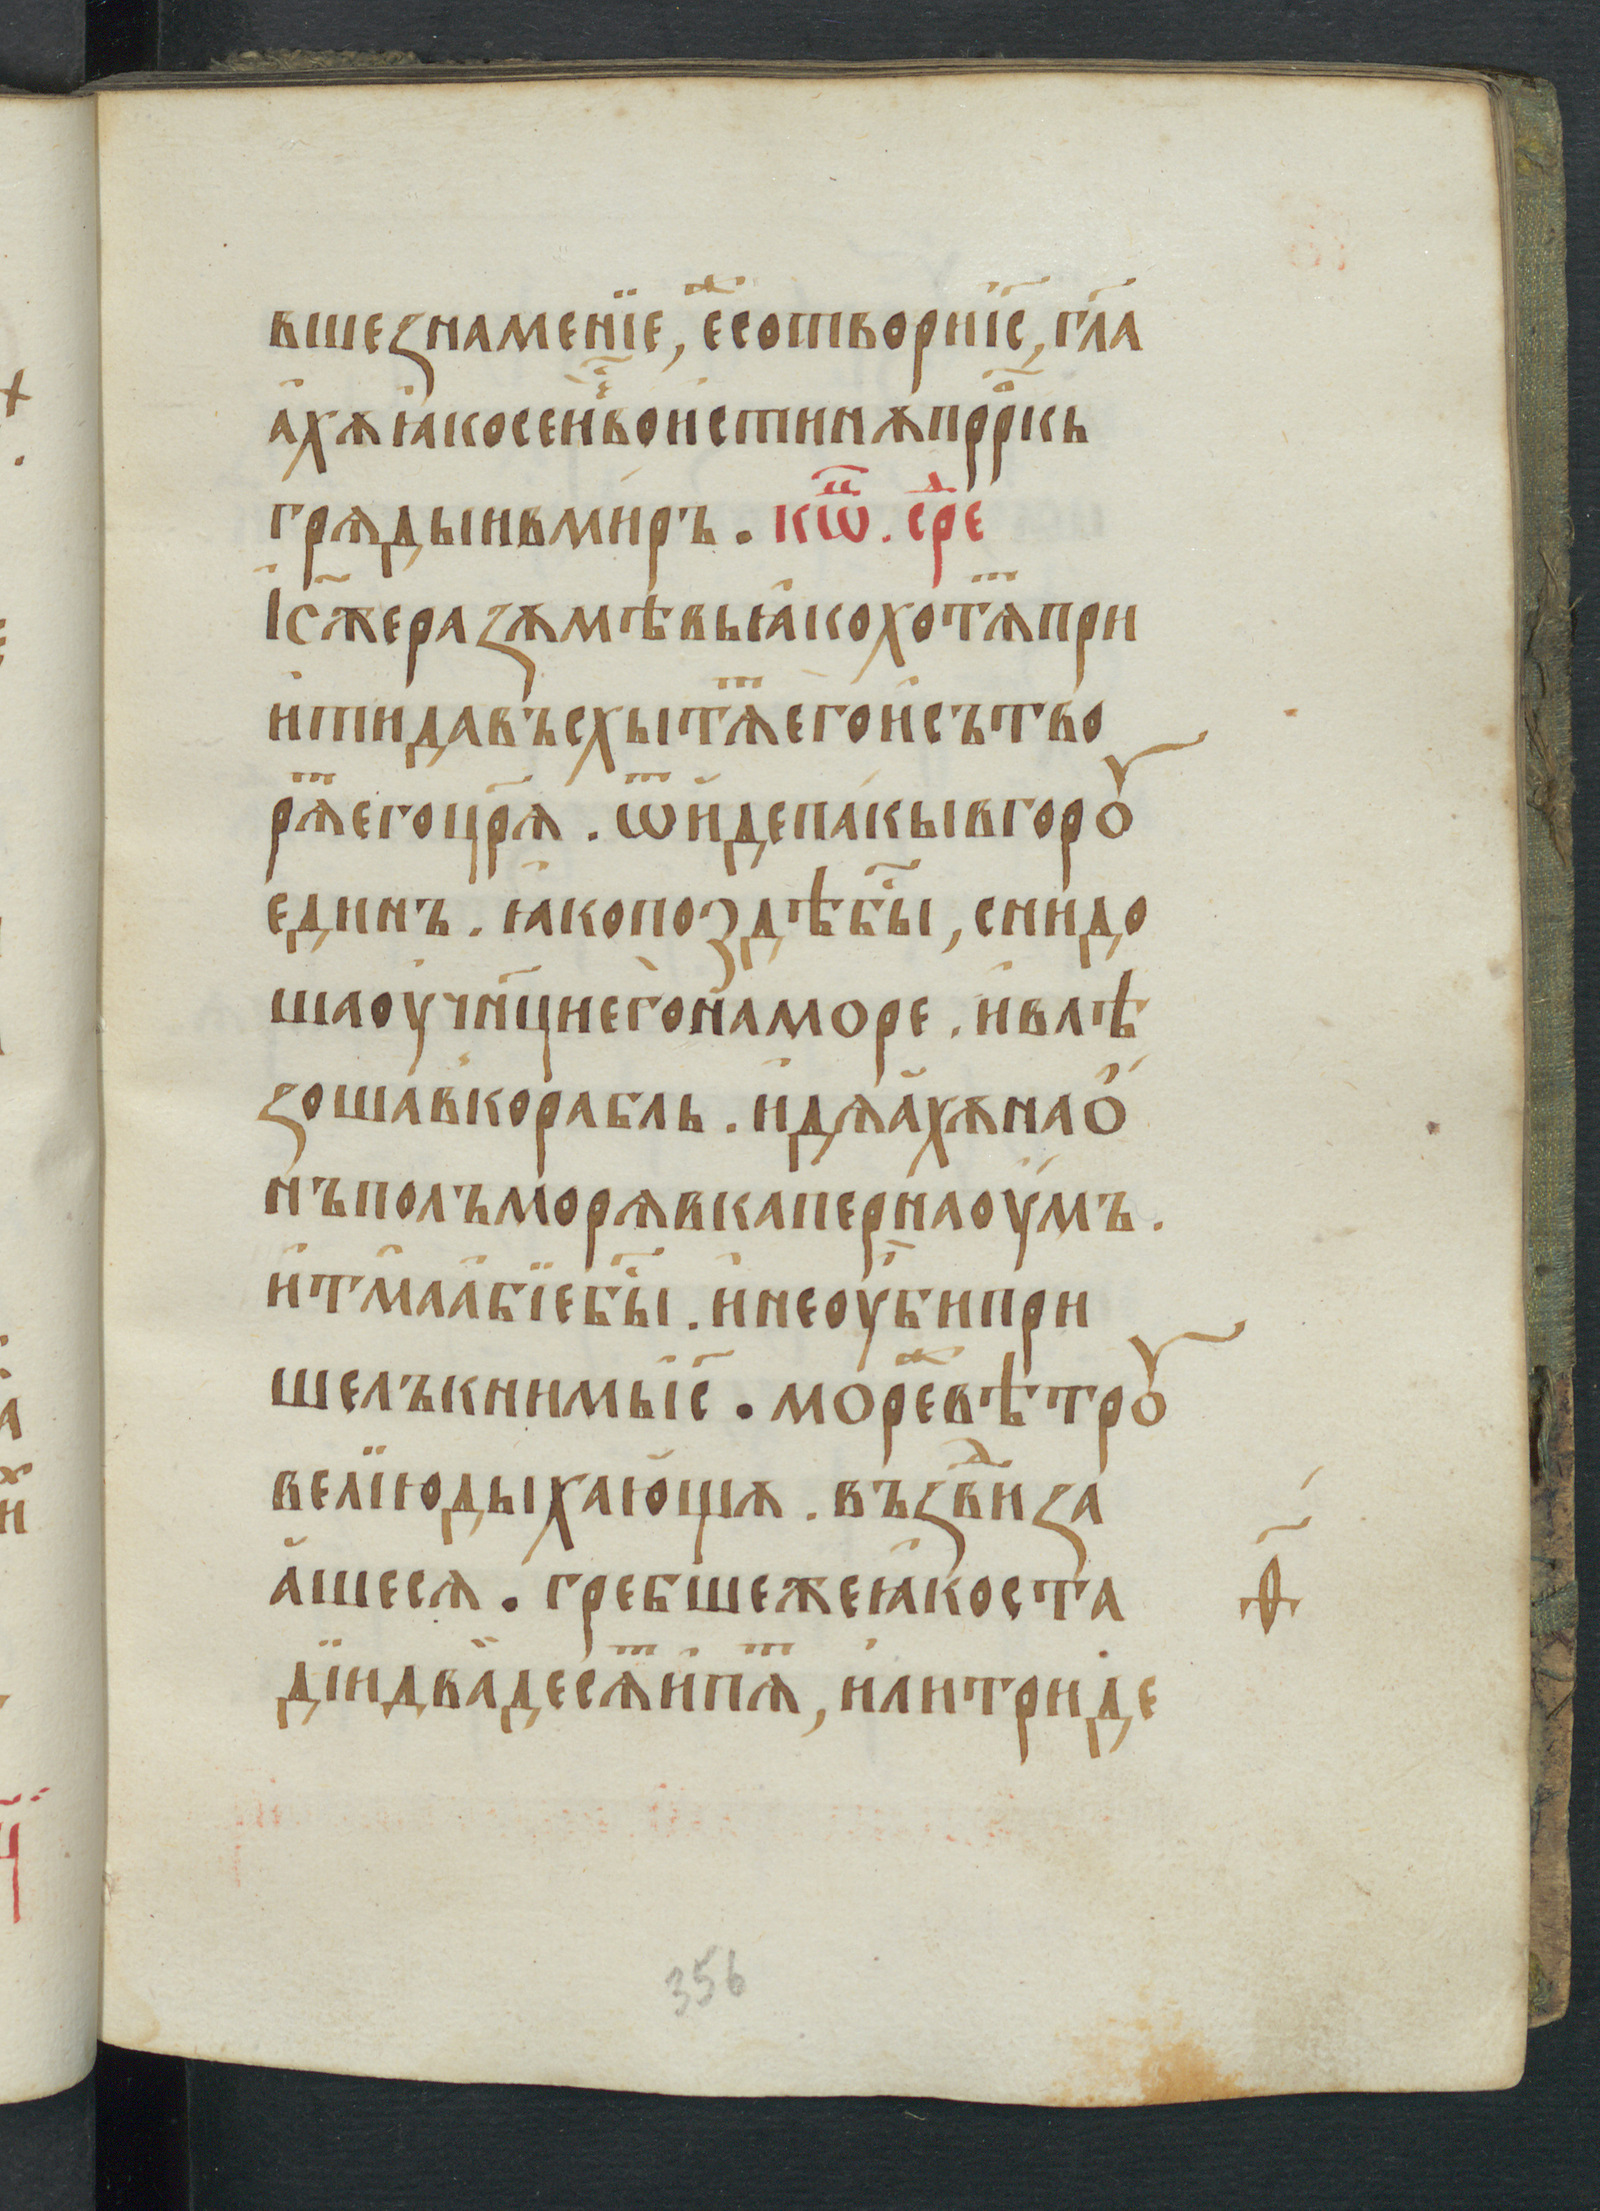 вшезнаменїе, еⷤсотвориі҃с, гл҃а
а҆хѫꙗ҆косеи҆ⷭ҇воистинꙗпррⷪ҇кь
грѧдыивмиръ. кⷰ҇ѿ. среⷣ
І҆с҃жеразѫмѣвьꙗ҆кохотѧⷮпри
и҆тидавъсхытѧⷮегои҆сътво
рѧⷮегоцр҃ѧ. ѿи҆депакывгорꙋ
единъ. ꙗ҆копоздѣбы҃, снидо
шаоучн҃циегонаморе. и҆влѣ
зошавкорабль. и҆дѧа҆хѫнао
нъполъморѧвкапернаоумъ.
и҆тмаа҆бїебы҃. и҆неоубипри
шелъкнимьі҃с. мореⷤвѣтрꙋ
велїюдыхающѧ. възвⷣиза
а҆шесѧ. гребшежеꙗ҆коста
дїидвадесѧⷮи҆пѧⷮ, и҆литриде
а҃
356